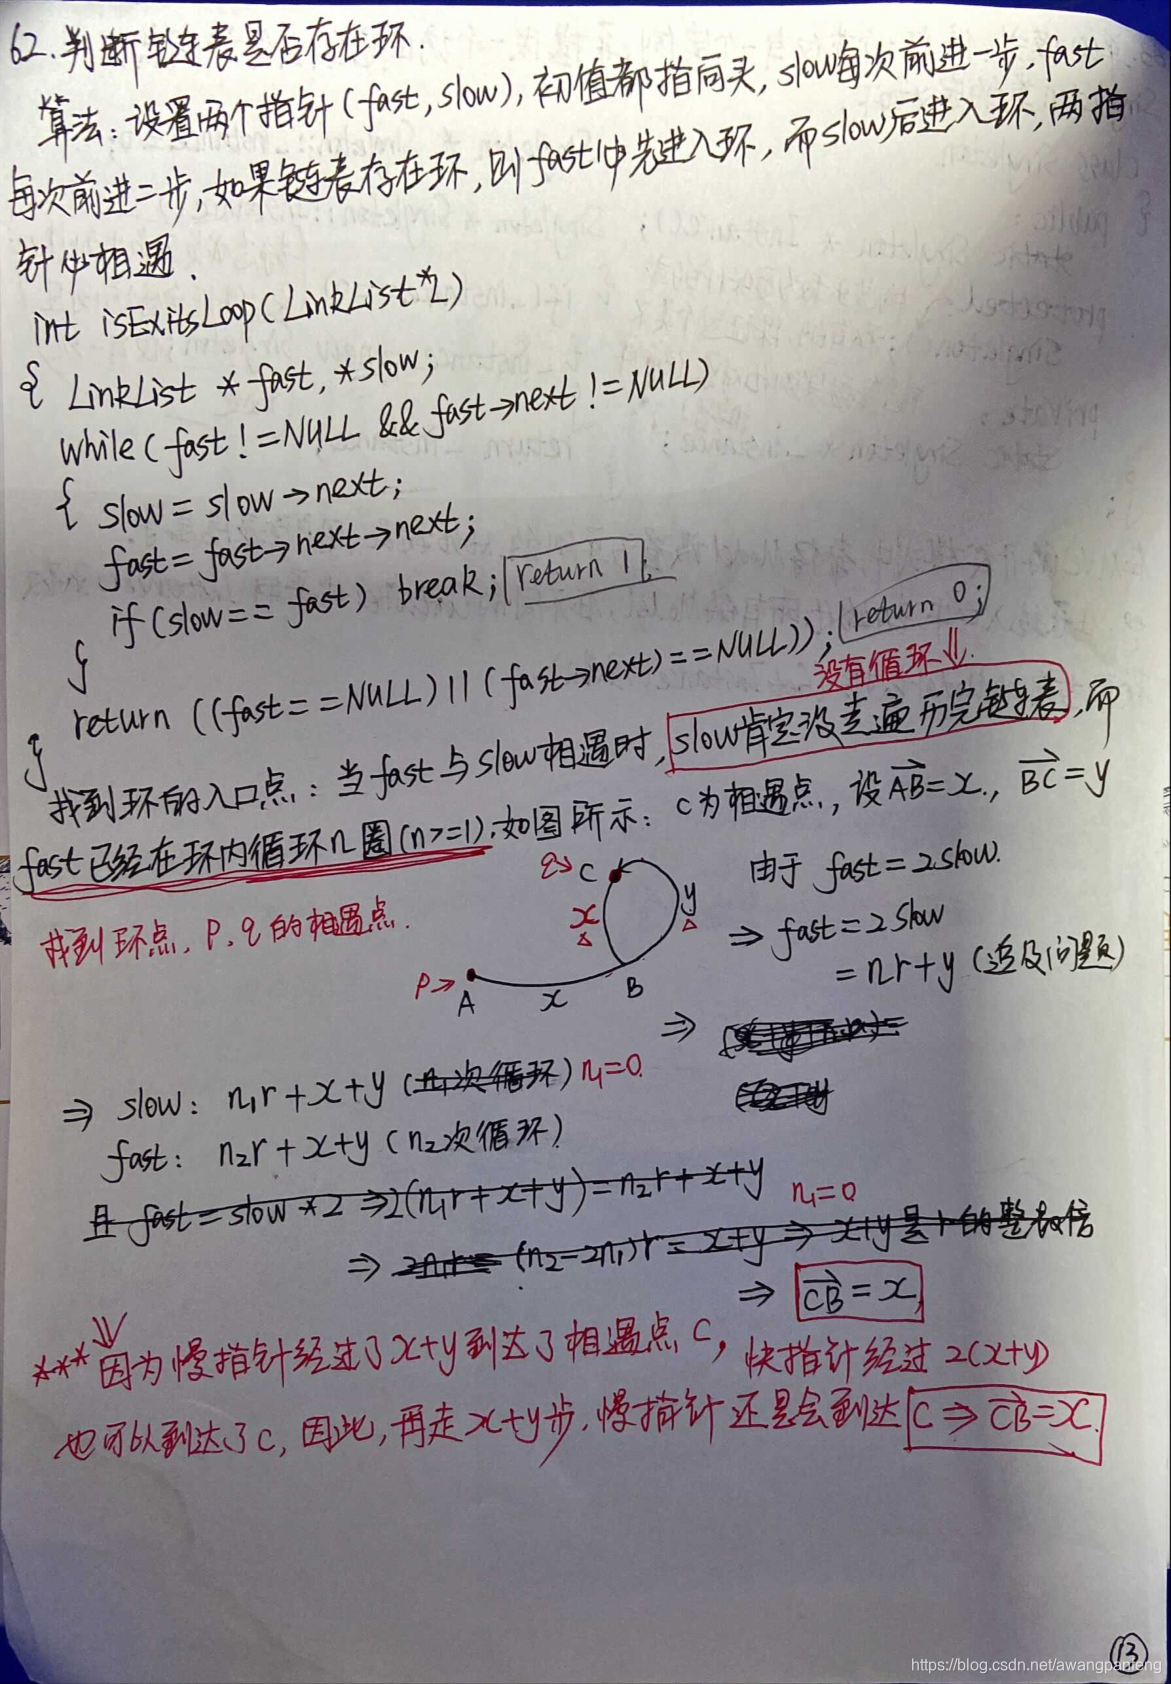 62.判断链表是否存在环.
算法:设置两个指针(fast,slow),初值都指向头,slow每次前进一步,fast
每次前进二步,如果链表存在环,则fast必先进入环,而slow后进入环,两指
针必相遇.
int isExitsLoop(LinkList*L)
{ LinkList *fast,*slow;
while(fast!=NULL && fast→next!=NULL)
{ slow=slow→next;
fast=fast→next→next;
if(slow==fast) break; return 1;
}
return ((fast==NULL)||(fast→next)==NULL)); return 0;
}
没有循环⇓.
找到环的入口点:当fast与slow相遇时,slow肯定没走遍历完链表,而
fast已经在环内循环n圈(n>=1).如图所示:C为相遇点,设AB=x,BC=y
q→ C
由于 fast=2slow.
x y
找到环点,p、q的相遇点.
⇒ fast=2slow
=nr+y(追及问题)
p→ A x B
⇒
⇒ slow: n₁r+x+y(n₁次循环) n₁=0.
fast: n₂r+x+y(n₂次循环)
且 fast=slow*2 ⇒2(n₁r+x+y)=n₂r+x+y
n₁=0
⇒ 2n₁r= (n₂-2n₁)r=x+y ⇒ x+y是r的整数倍
⇒ CB=x,
***因为慢指针经过了x+y到达了相遇点C,快指针经过2(x+y)
也可以到达了C,因此,再走x+y步,慢指针还是会到达C⇒CB=x.
13
https://blog.csdn.net/awangpanfeng